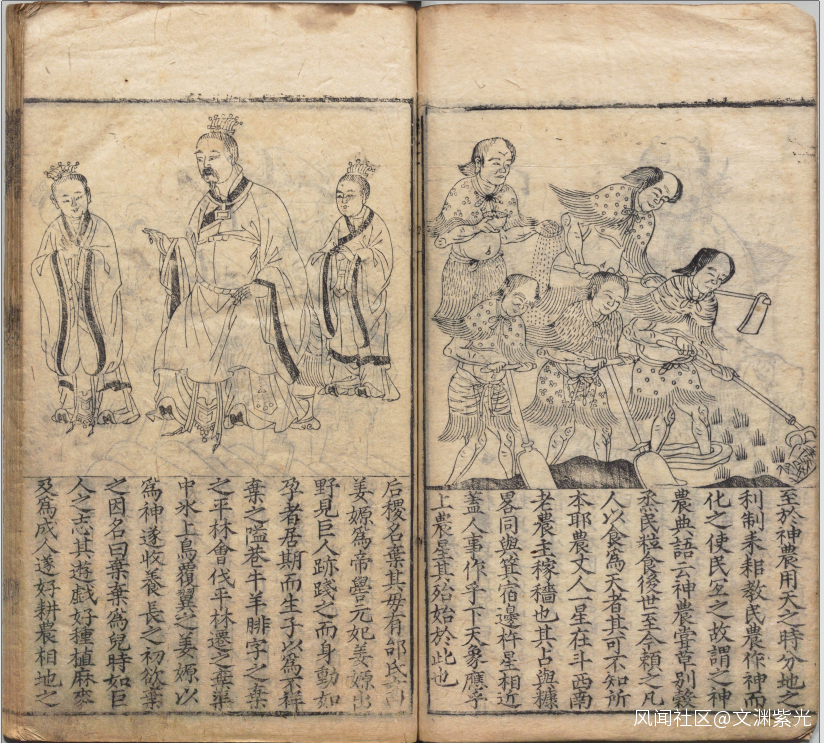 至於神農用天之時分地之
利制耒耜教民農作神而
化之使民宐之故謂之神
農典語云神農嘗草別穀
烝民粒食後世至今賴之凡
人以食爲天者其可不知所
本耶農丈人一星在斗西南
老農主稼穡也其占與糠
畧同與箕宿邊杵星相近
蓋人事作乎下天象應乎
上農星其殆始於此也
后稷名棄其母有邰氏女
姜嫄爲帝嚳元妃姜嫄出
野見巨人跡踐之而身動如
孕者居期而生子以爲不祥
棄之隘巷牛羊腓字之棄
之平林會伐平林遷之棄渠
中氷上鳥覆翼之姜嫄以
爲神遂收養長之初欲棄
之因名曰棄棄爲兒時如巨
人之志其遊戲好種植麻麥
及爲成人遂好耕農相地之
风闻社区@文渊紫光